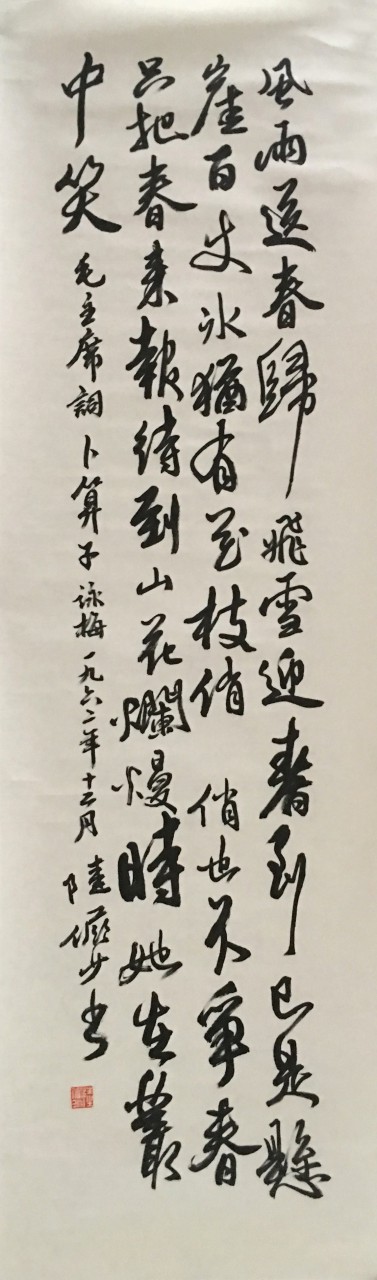 風雨送春歸飛雪迎春到已是懸
崖百丈冰猶有花枝俏 俏也不爭春
只把春來報待到山花爛熳時她在叢
中笑
毛主席詞卜算子詠梅一九六二年十二月陸儼少書